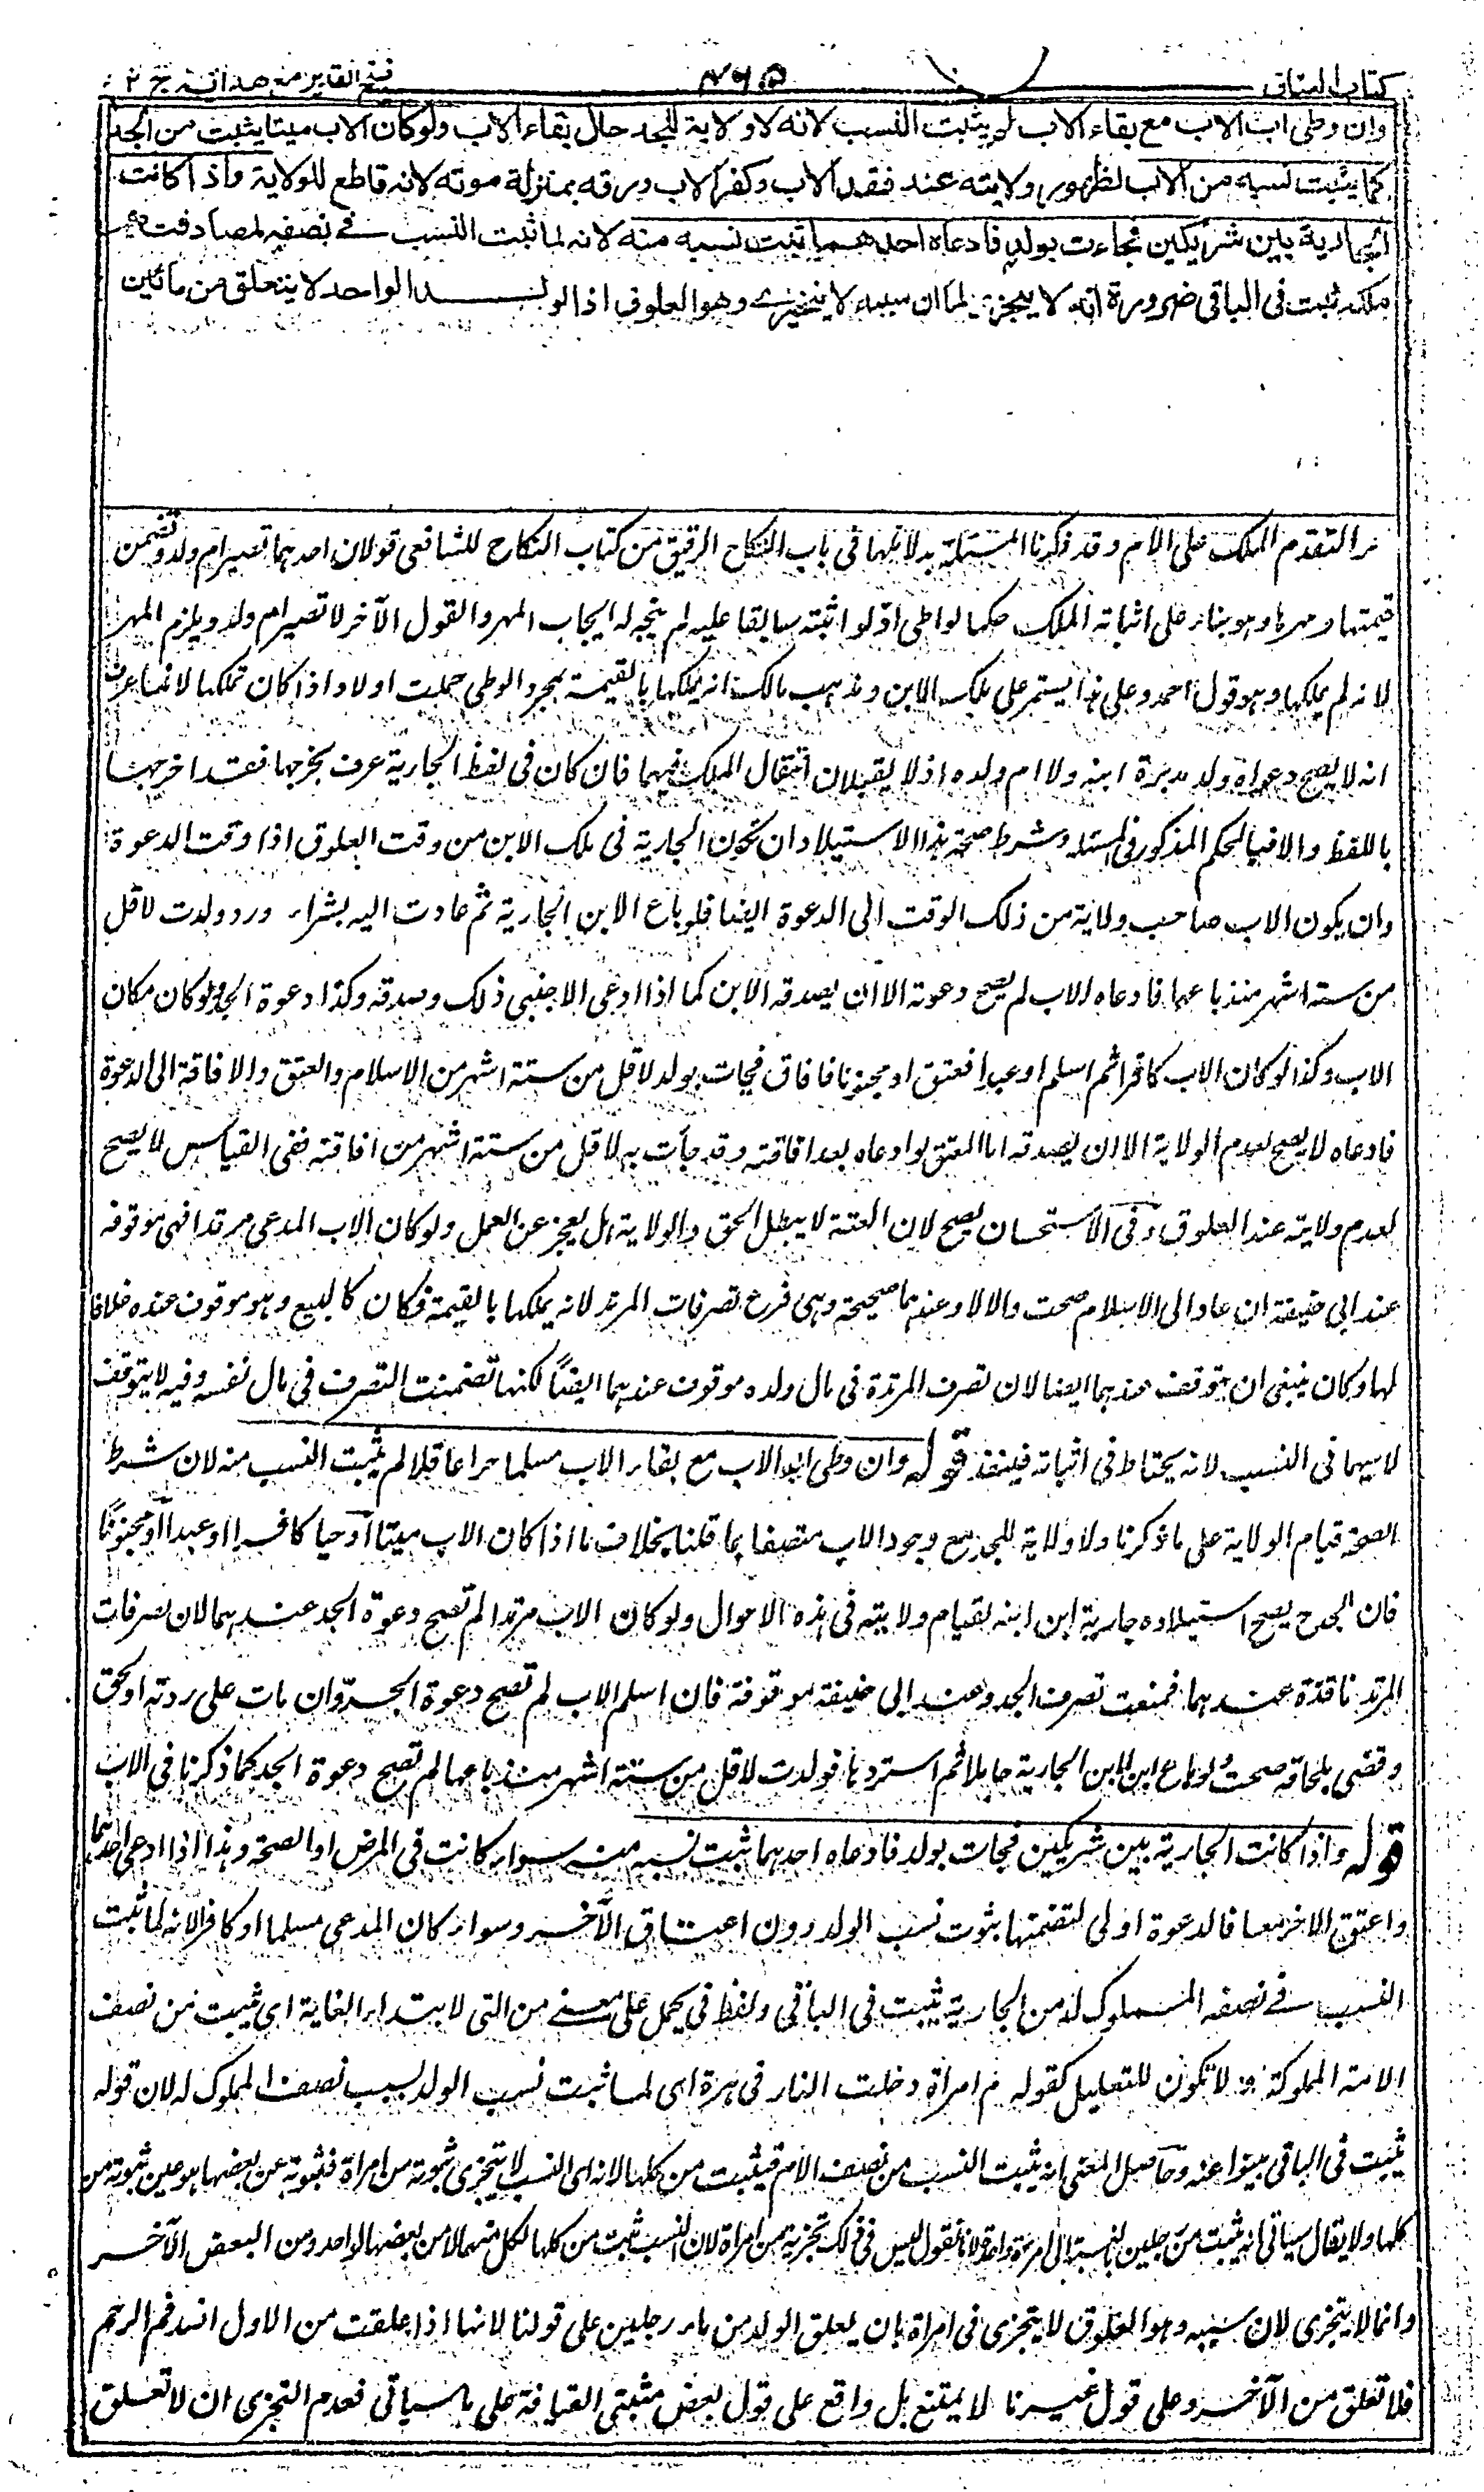 كتاب العتاق ٤٦٥ فتح القدير مع هداية ج ٢
وان وطى اب الاب مع بقاء الاب لم يثبت النسب لانه لا ولاية للجد حال بقاء الاب ولو كان الاب ميتا يثبت من الجد
كما يثبت نسبه من الاب لظهور ولايته عند فقد الاب وكفر الاب ورقه بمنزلة موته لانه قاطع للولاية واذا كانت
الجارية بين شريكين فجاءت بولد فادعاه احدهما ثبت نسبه منه لانه لما ثبت النسب في نصفه لمصادفته
ملكه ثبت في الباقي ضرورة انه لا يتجزى لما ان سببه لا يتجزى وهو العلوق اذ الولد الواحد لا يتعلق من مائين
التقدم الملك على الام وقد ذكرنا المسئلة بدلائلها في باب النكاح الرقيق من كتاب النكاح للشافعي قولان احدهما تصير ام ولد وتضمن
قيمتها ومهرها وهو بناء على اثباته الملك حكما لوطى اذ لو اثبته سابقا عليه لم يتجه له ايجاب المهر والقول الآخر لا تصير ام ولد ويلزم المهر
لانه لم يملكها وهو قول احمد وعلى هذا يستمر على ملك الابن ومذهب مالك انه يملكها بالقيمة بمجرد الوطى حملت اولا واذا كان تملكها لانسا عرف
انه لا يصح دعواه ولد مدبرة ابنه ولا ام ولده اذ لا يقبلان انتقال الملك فيهما فان كان في لفظ الجارية عرف يخرجها فقد اخرجها
باللفظ والا فبالحكم المذكور في المسئلة وشرط صحة هذا الاستيلاد ان تكون الجارية في ملك الابن من وقت العلوق اذا وقت الدعوة
وان يكون الاب صاحب ولاية من ذلك الوقت الى الدعوة ايضا فلو باع الابن الجارية ثم عادت اليه بشراء ورد وولدت لاقل
من ستة اشهر منذ باعها فادعاه الاب لم يصح دعوته الا ان يصدقه الابن كما اذا ادعى الاجنبي ذلك وصدقه وكذا دعوة الجد ولو كان مكان
الاب وكذا لو كان الاب كافرا ثم اسلم او عبدا فعتق او مجنونا فافاق فجات بولد لاقل من ستة اشهر من الاسلام والعتق والافاقة الى الدعوة
فادعاه لا يصح لعدم الولاية الا ان يصدقه اما المعتق لو ادعاه بعد افاقته وقد جاءت به لاقل من ستة اشهر من افاقته ففي القياس لا يصح
لعدم ولايته عند العلوق وفي الاستحسان يصح لان العتة لا يبطل الحق والولاية بل يعجز عن العمل ولو كان الاب المدعى مرتدا فهي موقوفة
عند ابي حنيفة ان عاد الى الاسلام صحت والا لا وعندهما صحيحة وهي فرع تصرفات المرتد لانه يملكها بالقيمة فكان كالبيع وهو موقوف عنده خلافا
لهما وكان ينبغي ان يتوقف عندهما ايضا لان تصرف المرتد في مال ولده موقوف عندهما ايضًا لكنها تضمنت التصرف في مال نفسه وفيه لا يتوقف
لا سيما في النسب لانه يحتاط في اثباته فينفذ قوله وان وطى اب الاب مع بقاء الاب مسلما حرا عاقلا لم يثبت النسب منه لان شرط
الصحة قيام الولاية على ما ذكرنا ولا ولاية للجد مع وجود الاب متصفا بما قلنا بخلاف ما اذا كان الاب ميتا او حيا كافرا او عبدا او مجنونًا
فان الجد ح يصح استيلاده جارية ابن ابنه لقيام ولايته في هذه الاحوال ولو كان الاب مرتدا لم تصح دعوة الجد عندهما لان تصرفات
المرتد نافذة عندهما فمنعت تصرف الجد وعند ابي حنيفة موقوفة فان اسلم الاب لم تصح دعوة الجد وان مات على ردته او لحق
وقضى بلحاقه صحت ولو باع ابن الابن الجارية حاملا ثم استردها فولدت لاقل من ستة اشهر منذ باعها لم تصح دعوة الجد كما ذكرنا في الاب
قوله واذا كانت الجارية بين شريكين فجات بولد فادعاه احدهما ثبت نسبه منه سواء كانت في المرض او الصحة وهذا اذا ادعى احدهما
واعتق الاخر معا فالدعوة اولى لتضمنها ثبوت نسب الولد دون اعتاق الآخر وسواء كان المدعى مسلما او كافرا لانه لما ثبت
النسب في نصفه المملوك له من الجارية ثبت في الباقي ولفظ في يحمل على معنى من التي لابتداء الغاية اي ثبت من نصف
الامة المملوكة له لا تكون للتعليل كقوله م امراة دخلت النار في هرة اى لما ثبت نسب الولد بسبب نصف المملوك له لان قوله
ثبت في الباقي ينبوا عنه وحاصل المعنى انه يثبت النسب من نصف الام فيثبت من كلها لانه اى النسب لا يتجزى ثبوته من امراة فثبوته عن بعضها هو عين ثبوته من
كلها ولا يقال سياتي انه يثبت من رجلين بالنسبة الى امرأة واحدة لانا نقول ليس في ذلك تجزية من امراة لان النسب ثبت من كلها لكل منهما لا من بعضها لواحد ومن البعض الآخر
وانما لا يتجزى لان سببه وهو العلوق لا يتجزى في امراة بان يعلق الولد من ماء رجلين على قولنا لانها اذا علقت من الاول انسد فم الرحم
فلا تعلق من الآخر وعلى قول غيرنا لا يمتنع بل واقع على قول بعض مثبتي القيافة على ما سياتي فعدم التجزى ان لا تعلق